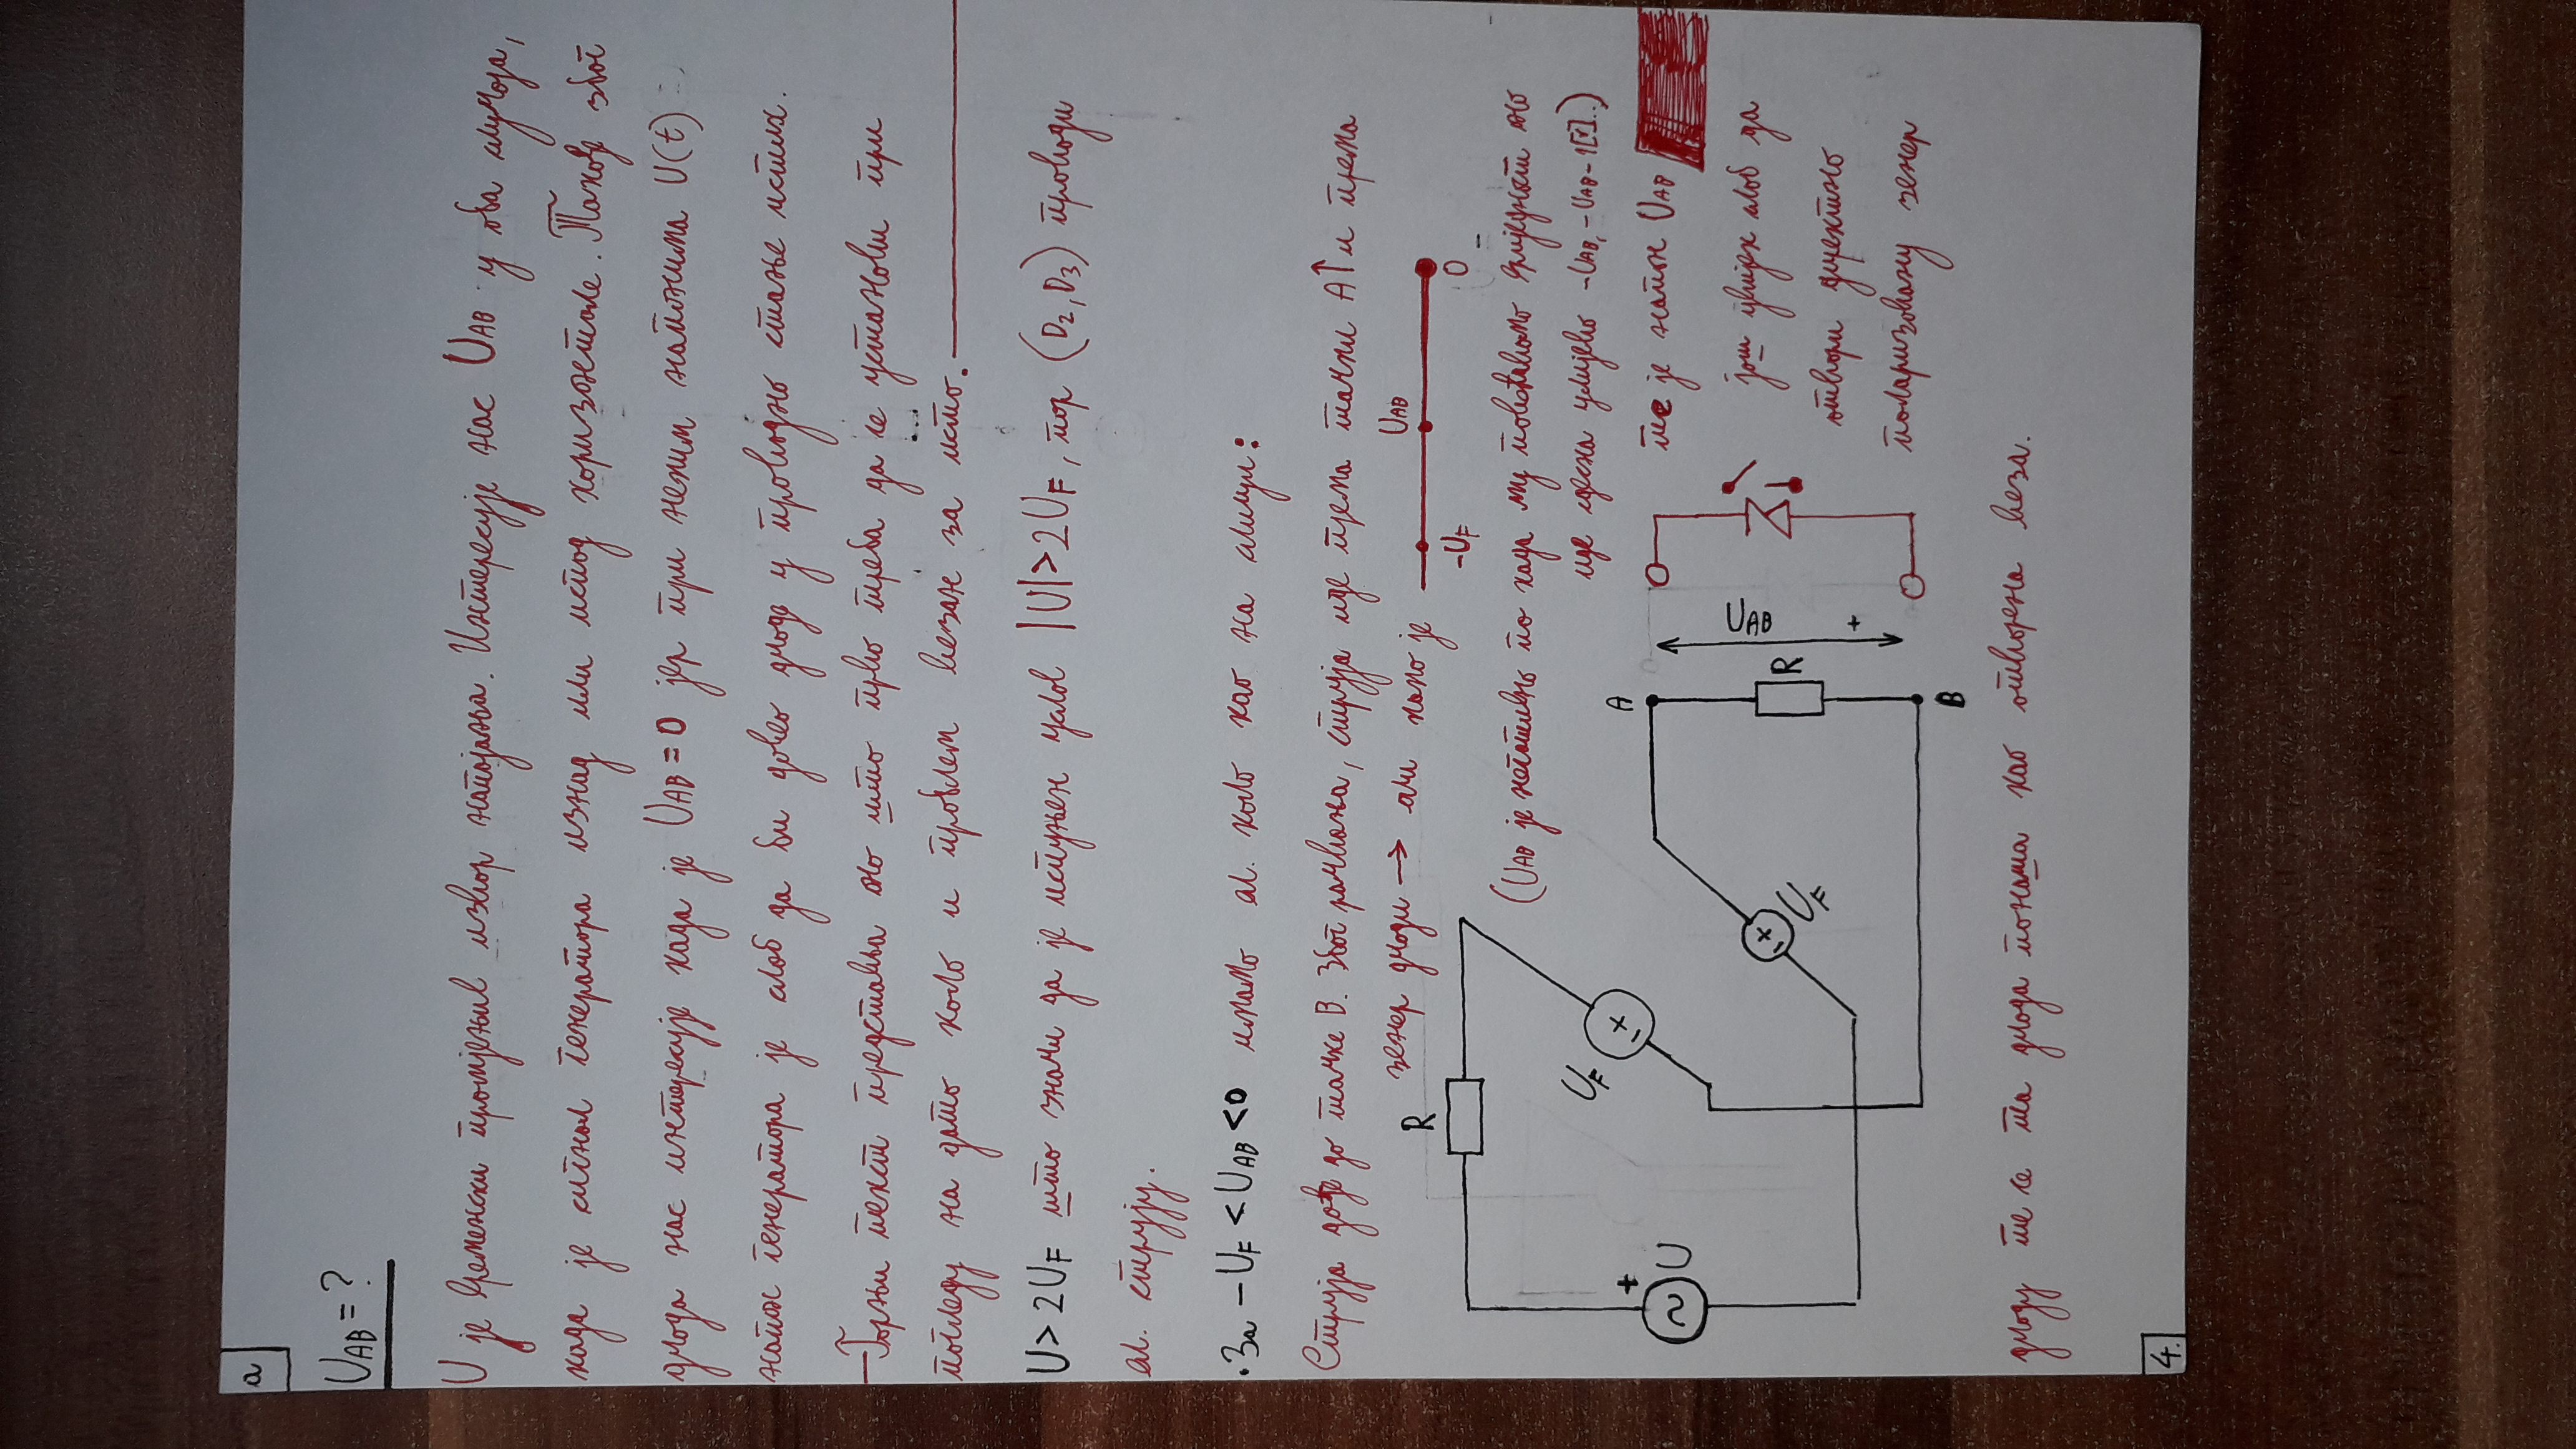 а
U_AB = ?
U је временски промјењив извор напајања. Интересује нас U_AB у оба случаја,
када је сигнал генератора изнад или испод хоризонтале. Такође због
диода нас интересује када је U_AB = 0 јер при неким напонима U(t)
напон генератора је слаб да би довео диоде у проводно стање истих.
— Горњи текст представља оно што прво треба да се установи при
погледу на дато коло и проблем везан за исто.
U > 2U_F што значи да је испуњен услов |U| > 2U_F, пар (D₂, D₃) проводи
ел. струју.
· За -U_F < U_AB < 0 имамо ел. коло као на слици:
Струја дође до тачке B. Због рачвања, струја иде према тачки A↑ и према
зенер диоди → али како је
U_AB
-U_F 0
R
(U_AB је негативно па када му повећавамо вриједност оно
иде сдесна улијево -U_AB, -U_AB - 1[V]..)
U_F
+
-
+
U
A
те је напон U_AB
U_AB
још увијек слаб да
+
-
U_F
R
отвори директно
+
поларизовану зенер
B
диоду те се та диода понаша као отворена веза.
4.